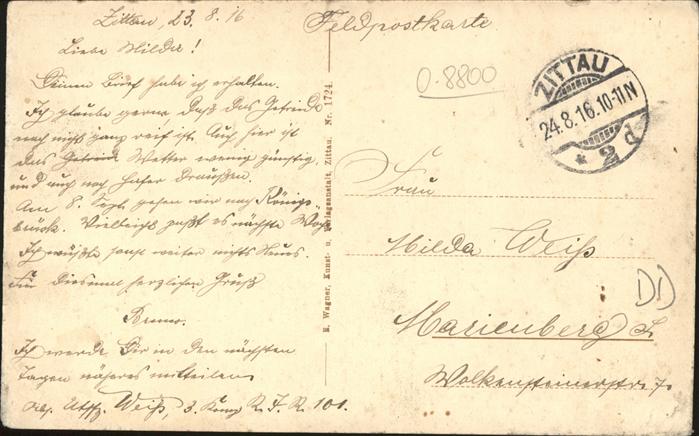 Zittau, 23.8.16
Liebe Milda!
Deinen Brief habe ich erhalten.
Ich glaube gerne daß das Getreide
noch nicht ganz reif ist. Auch hier ist
das Getreid Wetter wenig günstig,
und auch noch Hafer draußen.
Am 8. Sept. gehen wir nach Königs-
brück. Vielleicht paßt es nächste Woche
Ich wüßte sonst weiter nichts Neues.
Für diesmal herzlichen Gruß
Bruno.
Ich werde Dir in den nächsten
Tagen näheres mitteilen
Abs. Utffz. Weiß, 3. Komp R. I. R. 101.
R. Wagner, Kunst- u. Verlagsanstalt, Zittau. Nr. 1724.
Feldpostkarte
0.8800
ZITTAU
24.8.16.10-11N
* 2 d
Frau
Milda Weiß
Marienberg
Wolkensteinerstr. 7.
DD